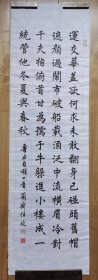 運交華蓋欲何求未敢翻身已碰頭舊帽
遮顏過鬧市破船載酒泛中流橫眉冷對
千夫指俯首甘為孺子牛躲進小樓成一
統管他冬夏與春秋